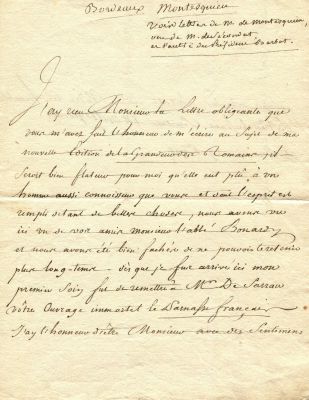 Bordeaux Montesquieu
Voir lettre de M. de Montesquieu,
J'ay reçu Monsieur la Lettre obligeante que
vous m'avez fait l'honneur de m'écrire au Sujet de ma
nouvelle Edition de la Grandeur des Romains, il
seroit bien flateur pour moi qu'elle eut plû à un
homme aussi connoisseur que vous et dont l'esprit est
rempli de tant de belles choses, nous avons vu
ici M de voir amis monsieur l'abbé Bonardy
et nous avons été bien fachés de ne pouvoir le retenir
plus long-tems. dès que je fus arrivé ici mon
premier Soin fut de remettre à Mrs De Sarrau
vôtre Ouvrage immortel le Parnasse françois
J'ay l'honneur d'être Monsieur avec des Sentimens